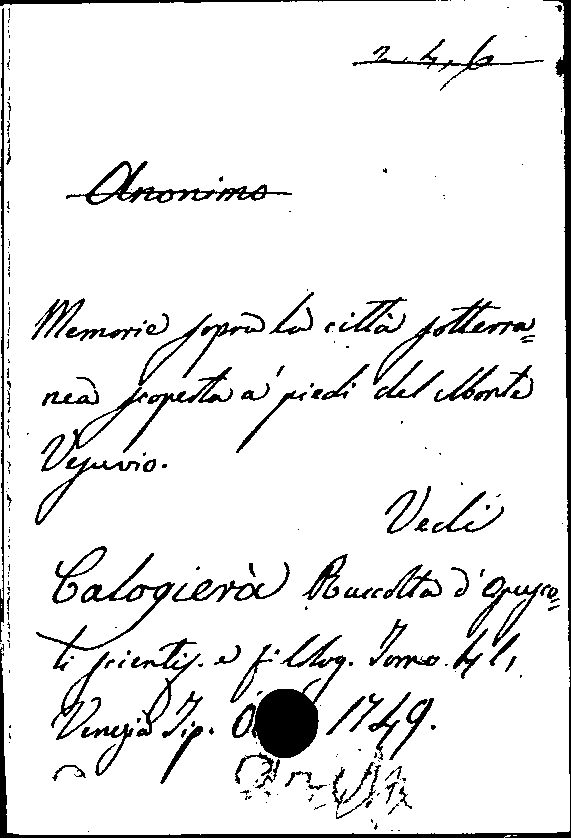 2.4,6
Anonimo
Memorie sopra la città sotterra=
nea scoperta a' piedi del Monte
Vesuvio.
Vedi
Calogierà Raccolta d'Opusco=
li scientif. e filolog. Tomo 41,
Venezia Tip. 1749.